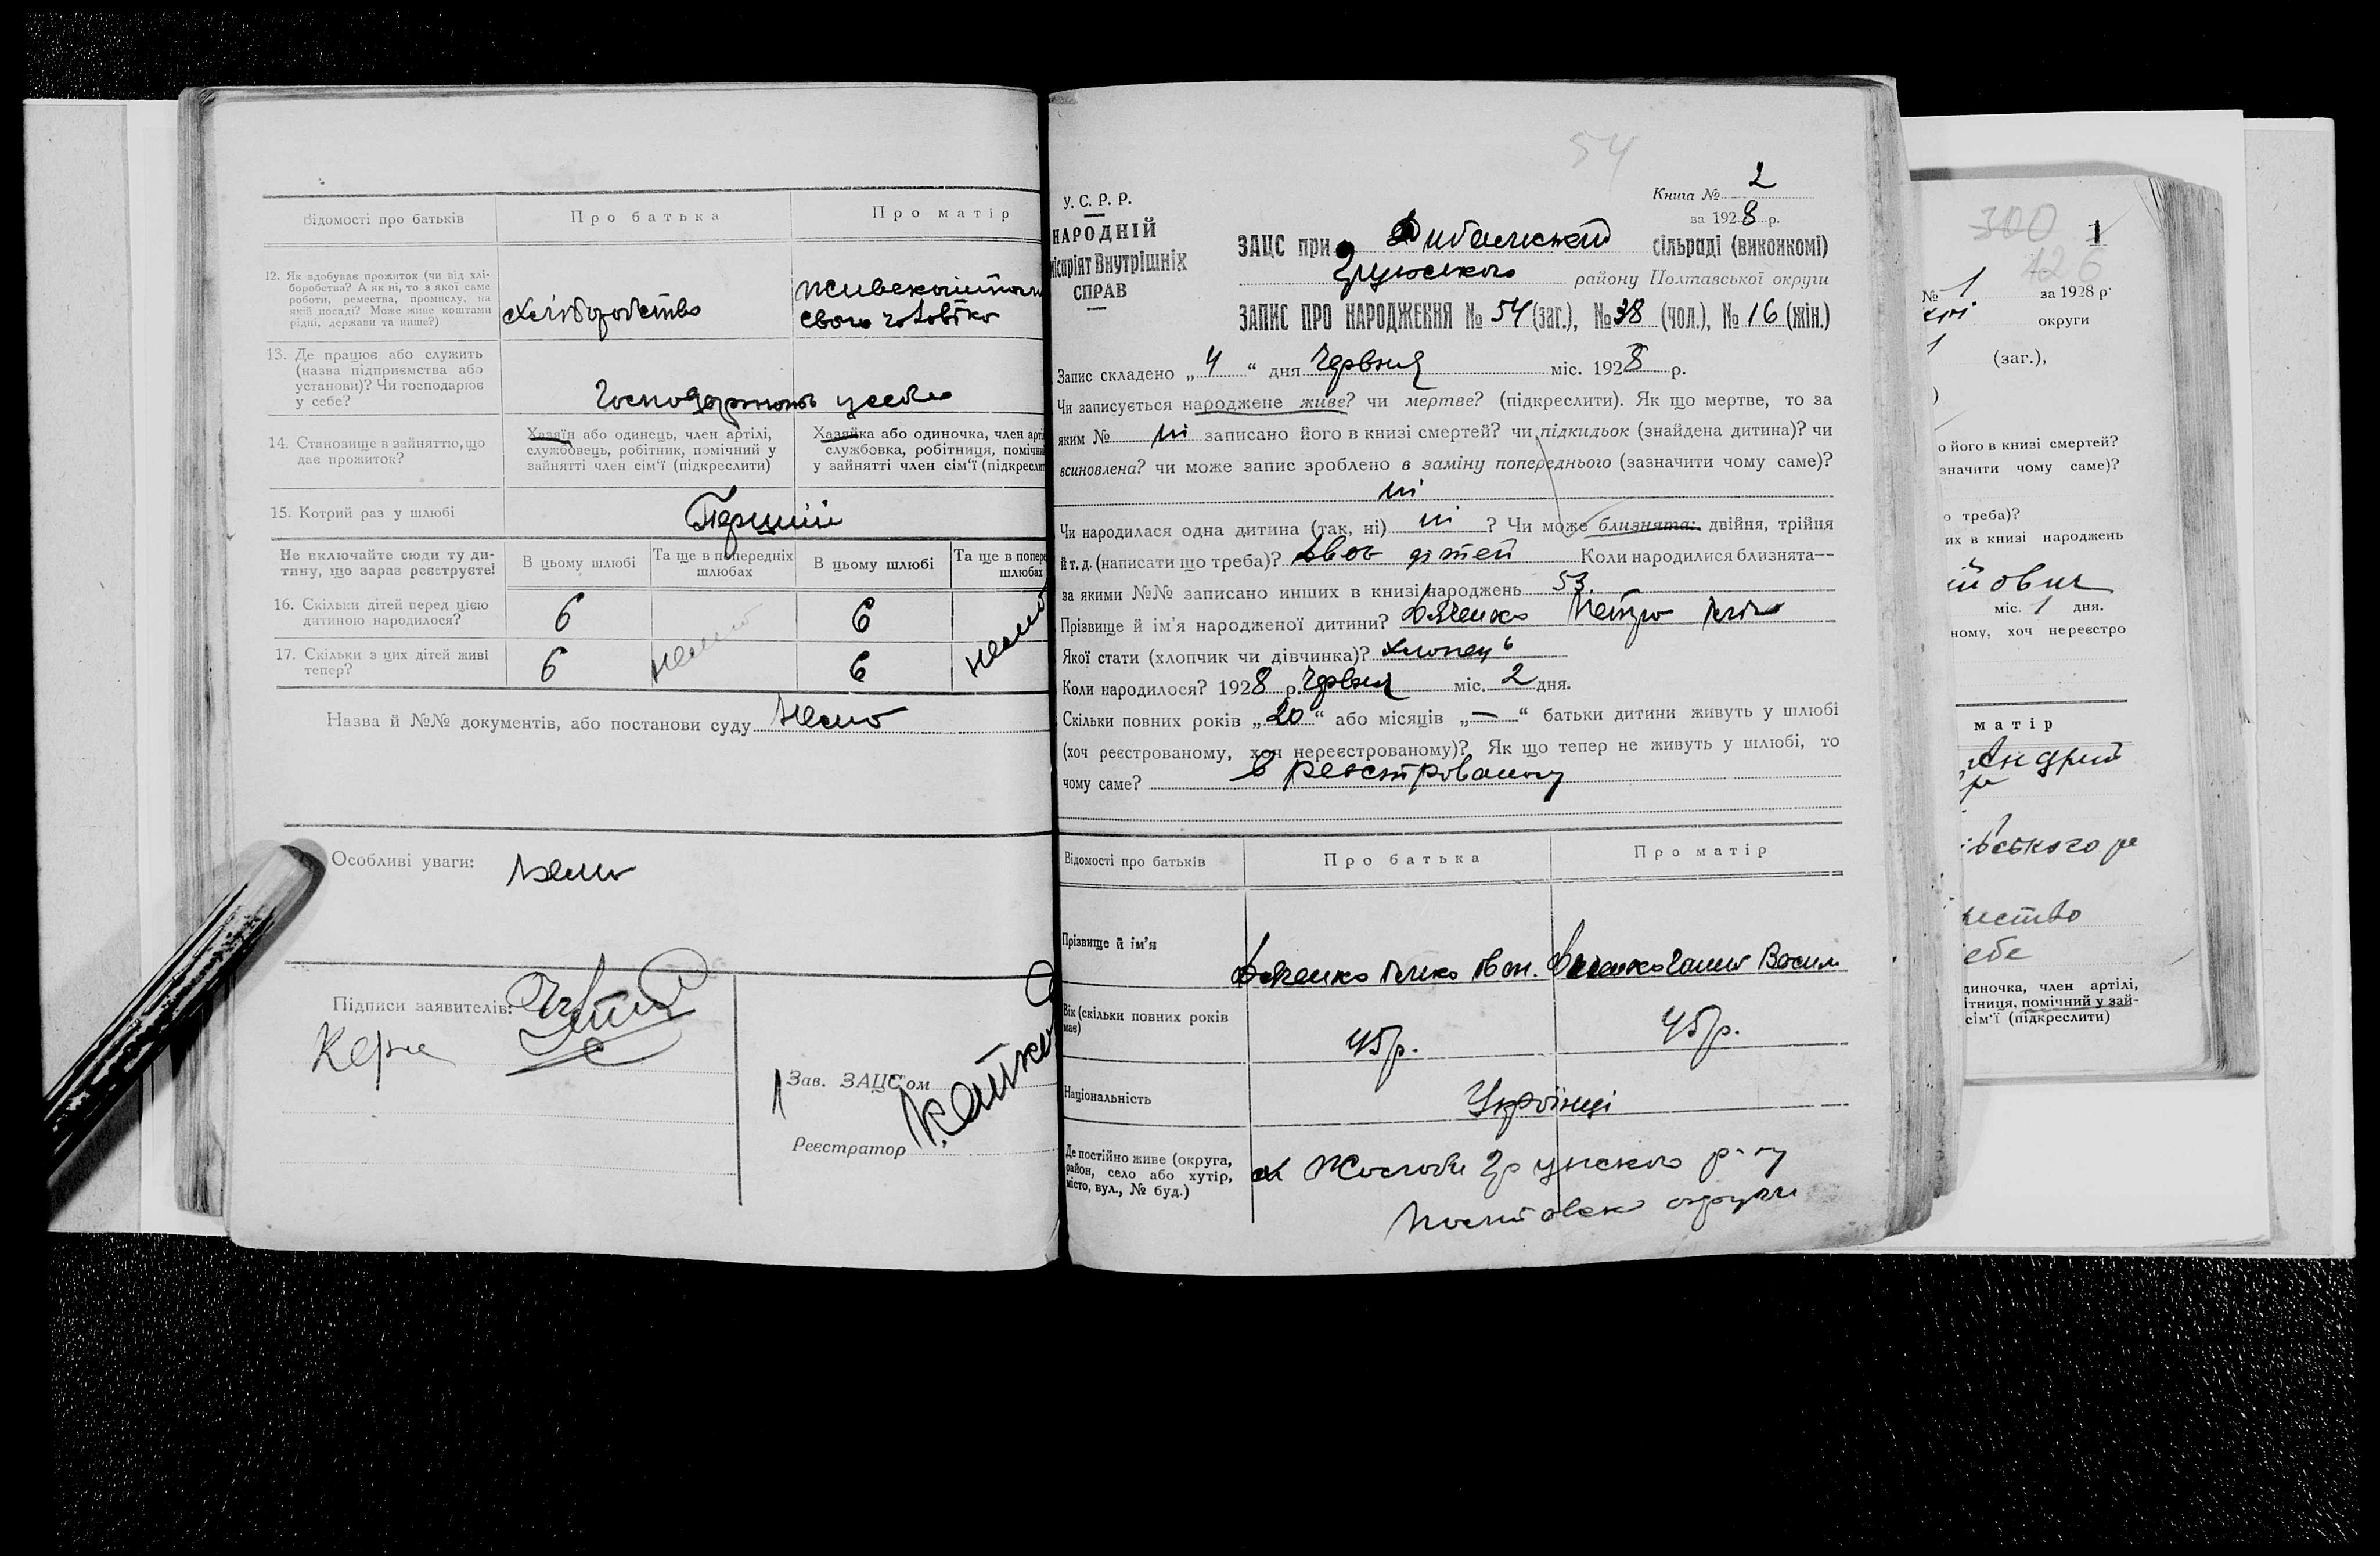 Відомості про батьків
Про батька
Про матір
12. Як здобуває прожиток (чи від хлі-
боробства? А як ні, то з якої саме
роботи, ремества, промислу, на
якій посаді? Може живе коштами
рідні, держави та инше?)
Хліборобство
свого чоловіка
13. Де працює або служить
(назва підприємства або
установи)? Чи господарює
у себе?
у себе
14. Становище в зайняттю, що
дає прожиток?
Хазяїн або одинець, член артілі,
службовець, робітник, помічний у
зайнятті член сім'ї (підкреслити)
Хазяйка або одиночка, член арті
службовка, робітниця, помічни
у зайнятті член сім'ї (підкресли
15. Котрий раз у шлюбі
Перший
Не включайте сюди ту ди-
тину, що зараз реєструєте!
В цьому шлюбі
Та ще в попередніх
шлюбах
В цьому шлюбі
Та ще в попере
шлюбах
16. Скільки дітей перед цією
дитиною народилося?
6
6
17. Скільки з цих дітей живі
тепер?
6
нема
6
нема
Назва й №№ документів, або постанови суду Нема
Особливі уваги: Нема
Підписи заявителів:
Зав. ЗАЦС'ом
Реєстратор
54
У.С.Р.Р.
НАРОДНІЙ
місаріят Внутрішніх
СПРАВ
Книга № 2
за 1928 р.
ЗАЦС при сільраді (виконкомі)
району Полтавської округи
ЗАПИС ПРО НАРОДЖЕННЯ № 54 (заг.), № 38 (чол.), № 16 (жін.)
Запис складено „4“ дня Червня міс. 1928 р.
Чи записується народжене живе? чи мертве? (підкреслити). Як що мертве, то за
яким № ні записано його в книзі смертей? чи підкидьок (знайдена дитина)? чи
всиновлена? чи може запис зроблено в заміну попереднього (зазначити чому саме)?
ні
Чи народилася одна дитина (так, ні) ні ? Чи може близнята: двійня, трійня
й т. д. (написати що треба)? двоє дітей Коли народилися близнята—
за якими №№ записано инших в книзі народжень 53.
Прізвище й ім'я народженої дитини? Дяченко Петро
Якої стати (хлопчик чи дівчинка)? хлопець
Коли народилося? 1928 р. Червня міс. 2 дня.
Скільки повних років „20“ або місяців „—“ батьки дитини живуть у шлюбі
(хоч реєстрованому, хоч нереєстрованому)? Як що тепер не живуть у шлюбі, то
чому саме? В реєстрованому
Відомості про батьків
Про батька
Про матір
Прізвище й ім'я
Дяченко Іван.
Дяченко Ганна Васил
Вік (скільки повних років
має)
45 р.
45 р.
Національність
Українці
Де постійно живе (округа,
район, село або хутір,
місто, вул., № буд.)
р-ну
округи
300
1
126
№ 1 за 1928 р.
округи
(заг.),
о його в книзі смертей?
значити чому саме)?
о треба)?
их в книзі народжень
йович
міс. 1 дня.
ному, хоч нереєстро
матір
Андрий
вського
ество
ебе
диночка, член артілі,
ітниця, помічний у зай-
сім'ї (підкреслити)